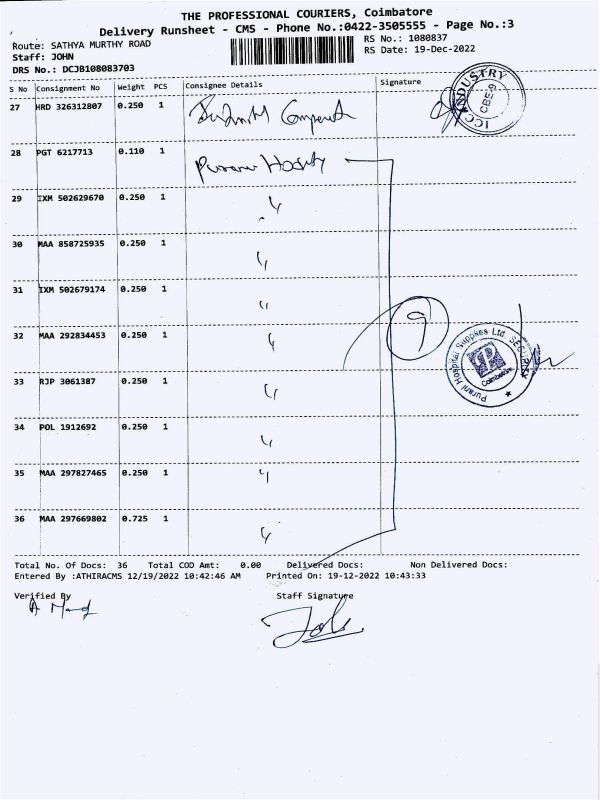 THE PROFESSIONAL COURIERS, Coimbatore
Delivery Runsheet - CMS - Phone No.:0422-3505555 - Page No.:3
Route: SATHYA MURTHY ROAD
RS No.: 1080837
Staff: JOHN
RS Date: 19-Dec-2022
DRS No.: DCJB108083703
S No Consignment No Weight PCS Consignee Details Signature
27 HRD 326312807 0.250 1
INDUSTRY CBE-9 ICC
28 PGT 6217713 0.110 1
29 IXM 502629670 0.250 1 "
30 MAA 858725935 0.250 1 "
31 IXM 502679174 0.250 1 "
9
32 MAA 292834453 0.250 1 "
Purani Hospital Supplies Ltd. SECURITY Coimbatore
33 RJP 3061387 0.250 1 "
34 POL 1912692 0.250 1 "
35 MAA 297827465 0.250 1 "
36 MAA 297669802 0.725 1 "
Total No. Of Docs: 36 Total COD Amt: 0.00 Delivered Docs: Non Delivered Docs:
Entered By :ATHIRACMS 12/19/2022 10:42:46 AM Printed On: 19-12-2022 10:43:33
Verified By Staff Signature